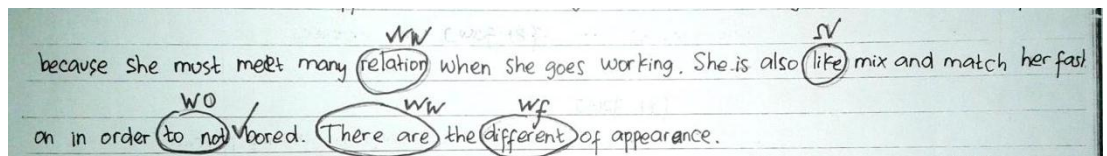 WW SV
because she must meet many relation when she goes working. She is also like mix and match her fashi
WO WW Wf
on in order to not bored. There are the different of appearance.